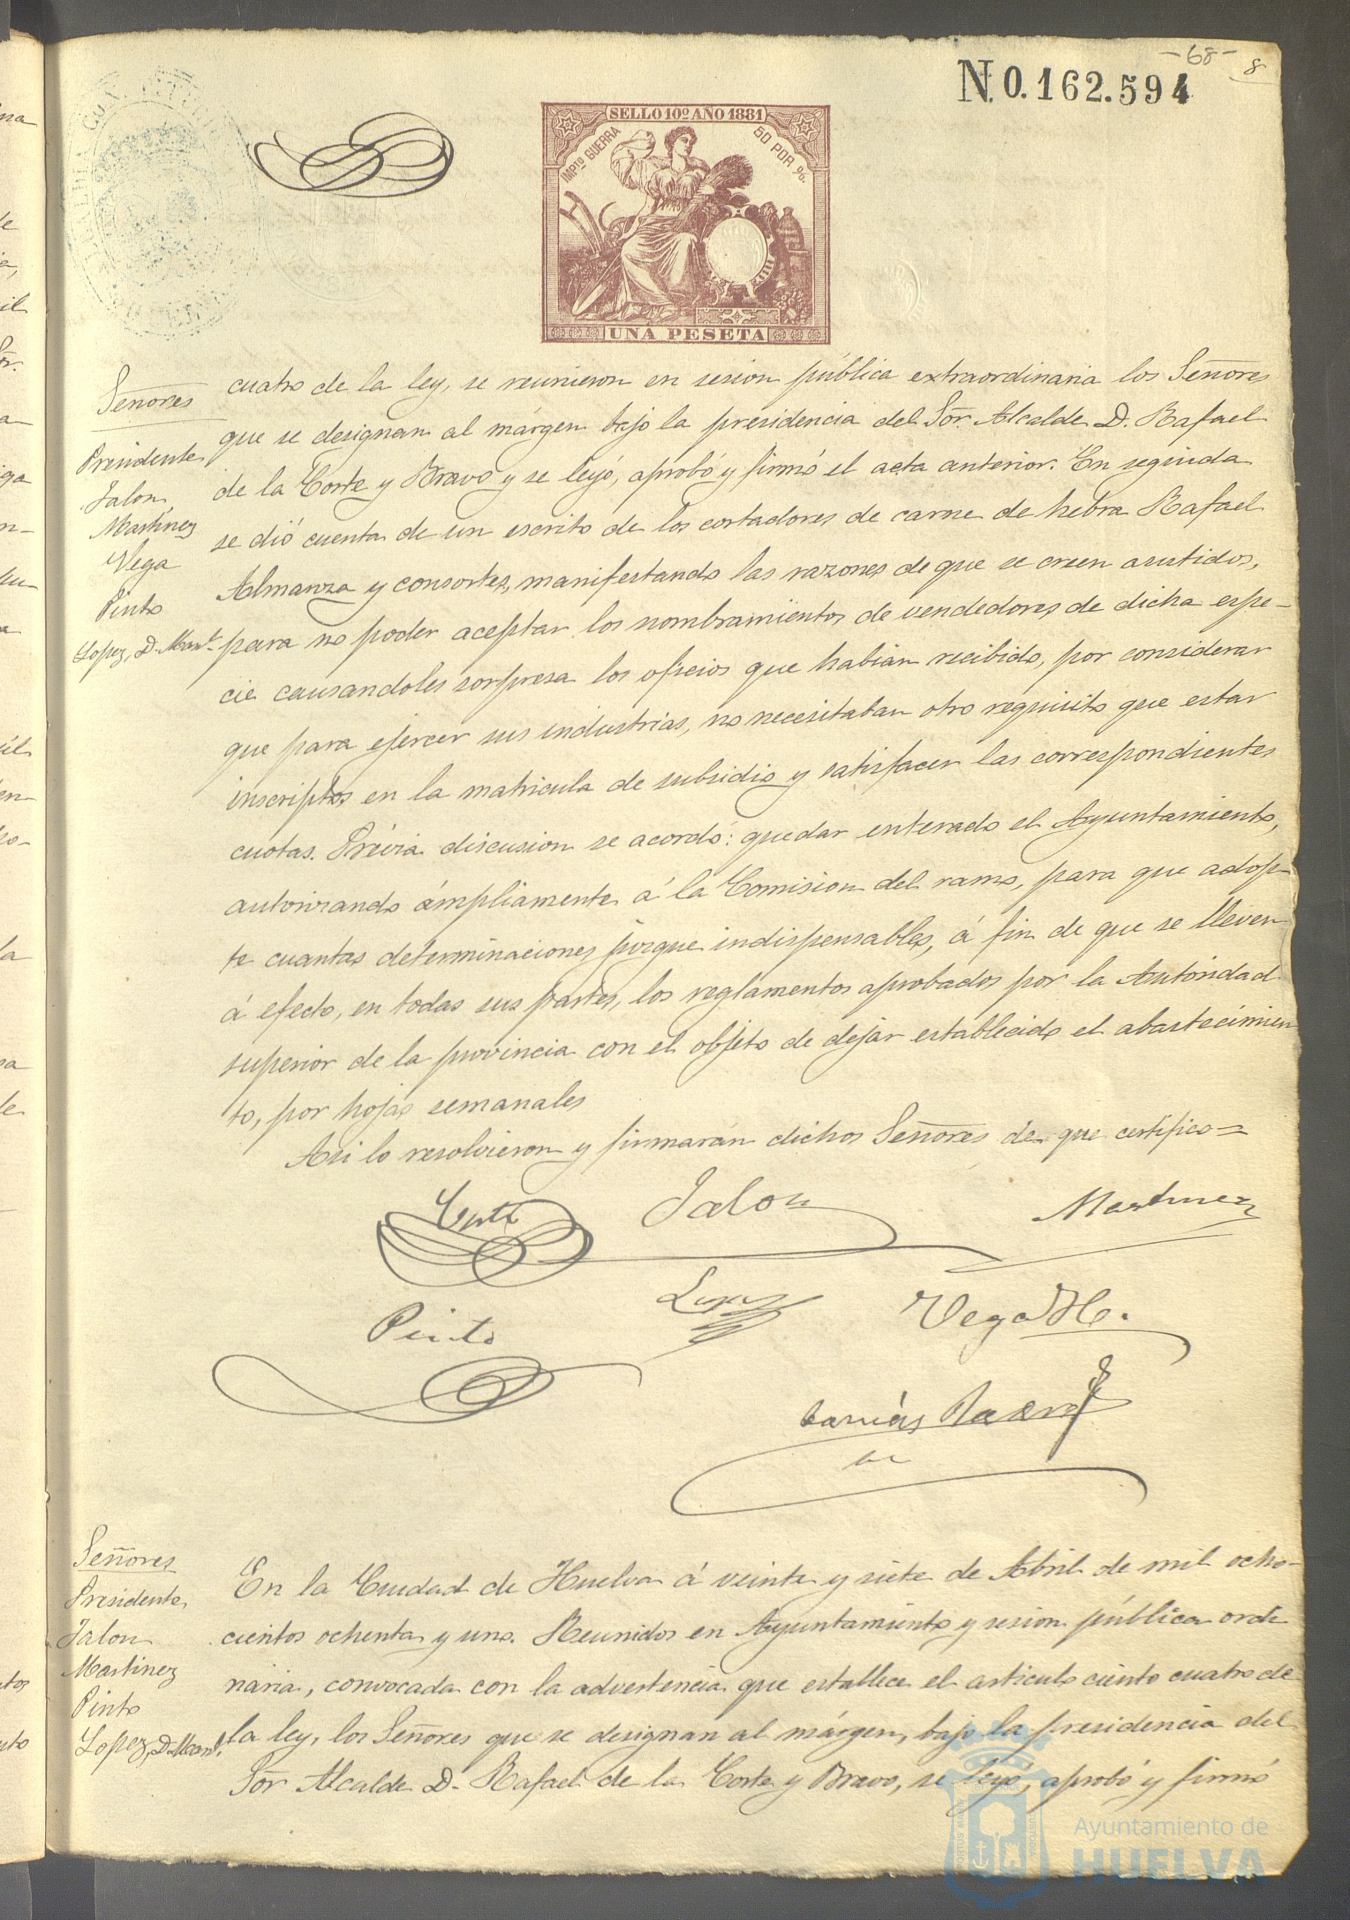 -68- 8
N. 0.162.594
SELLO 10º AÑO 1881
IMPTO GUERRA
50 POR %
UNA PESETA
Señores
Presidente
Jalon
Martinez
Vega
Pinto
Lopez, D. Manl.
cuatro de la ley, se reunieron en sesion pública extraordinaria los Señores
que se designan al márgen bajo la presidencia del Sor. Alcalde D. Rafael
de la Corte y Bravo y se leyó, aprobó y firmó el acta anterior. En seguida
se dió cuenta de un escrito de los cortadores de carne de hebra Rafael
Almanza y consortes, manifestando las razones de que se creen asistidos,
para no poder aceptar los nombramientos de vendedores de dicha espe-
cie causandoles sorpresa los oficios que habian recibido, por considerar
que para ejercer sus industrias, no necesitaban otro requisito que estar
inscriptos en la matricula de subsidio y satisfacer las correspondientes
cuotas. Prévia discusion se acordó: quedar enterado el Ayuntamiento,
autorizando ámpliamente á la Comision del ramo, para que adop-
te cuantas determinaciones juzgue indispensables, á fin de que se lleven
á efecto, en todas sus partes, los reglamentos aprobados por la Autoridad
superior de la provincia con el objeto de dejar establecido el abastecimien
to, por hojas semanales
Asi lo resolvieron y firmarán dichos Señores de que certifico=
Corte Jalon Martinez
Pinto Lopez Vega H.
Señores
Presidente
Jalon
Martinez
Pinto
Lopez, D. Manl.
En la Ciudad de Huelva á veinte y siete de Abril de mil ocho-
cientos ochenta y uno. Reunidos en Ayuntamiento y sesion pública ordi
naria, convocada con la advertencia que establece el articulo ciento cuatro de
la ley, los Señores que se designan al márgen, bajo la presidencia del
Sor. Alcalde D. Rafael de la Corte y Bravo, se leyó, aprobó y firmó
Ayuntamiento de
HUELVA